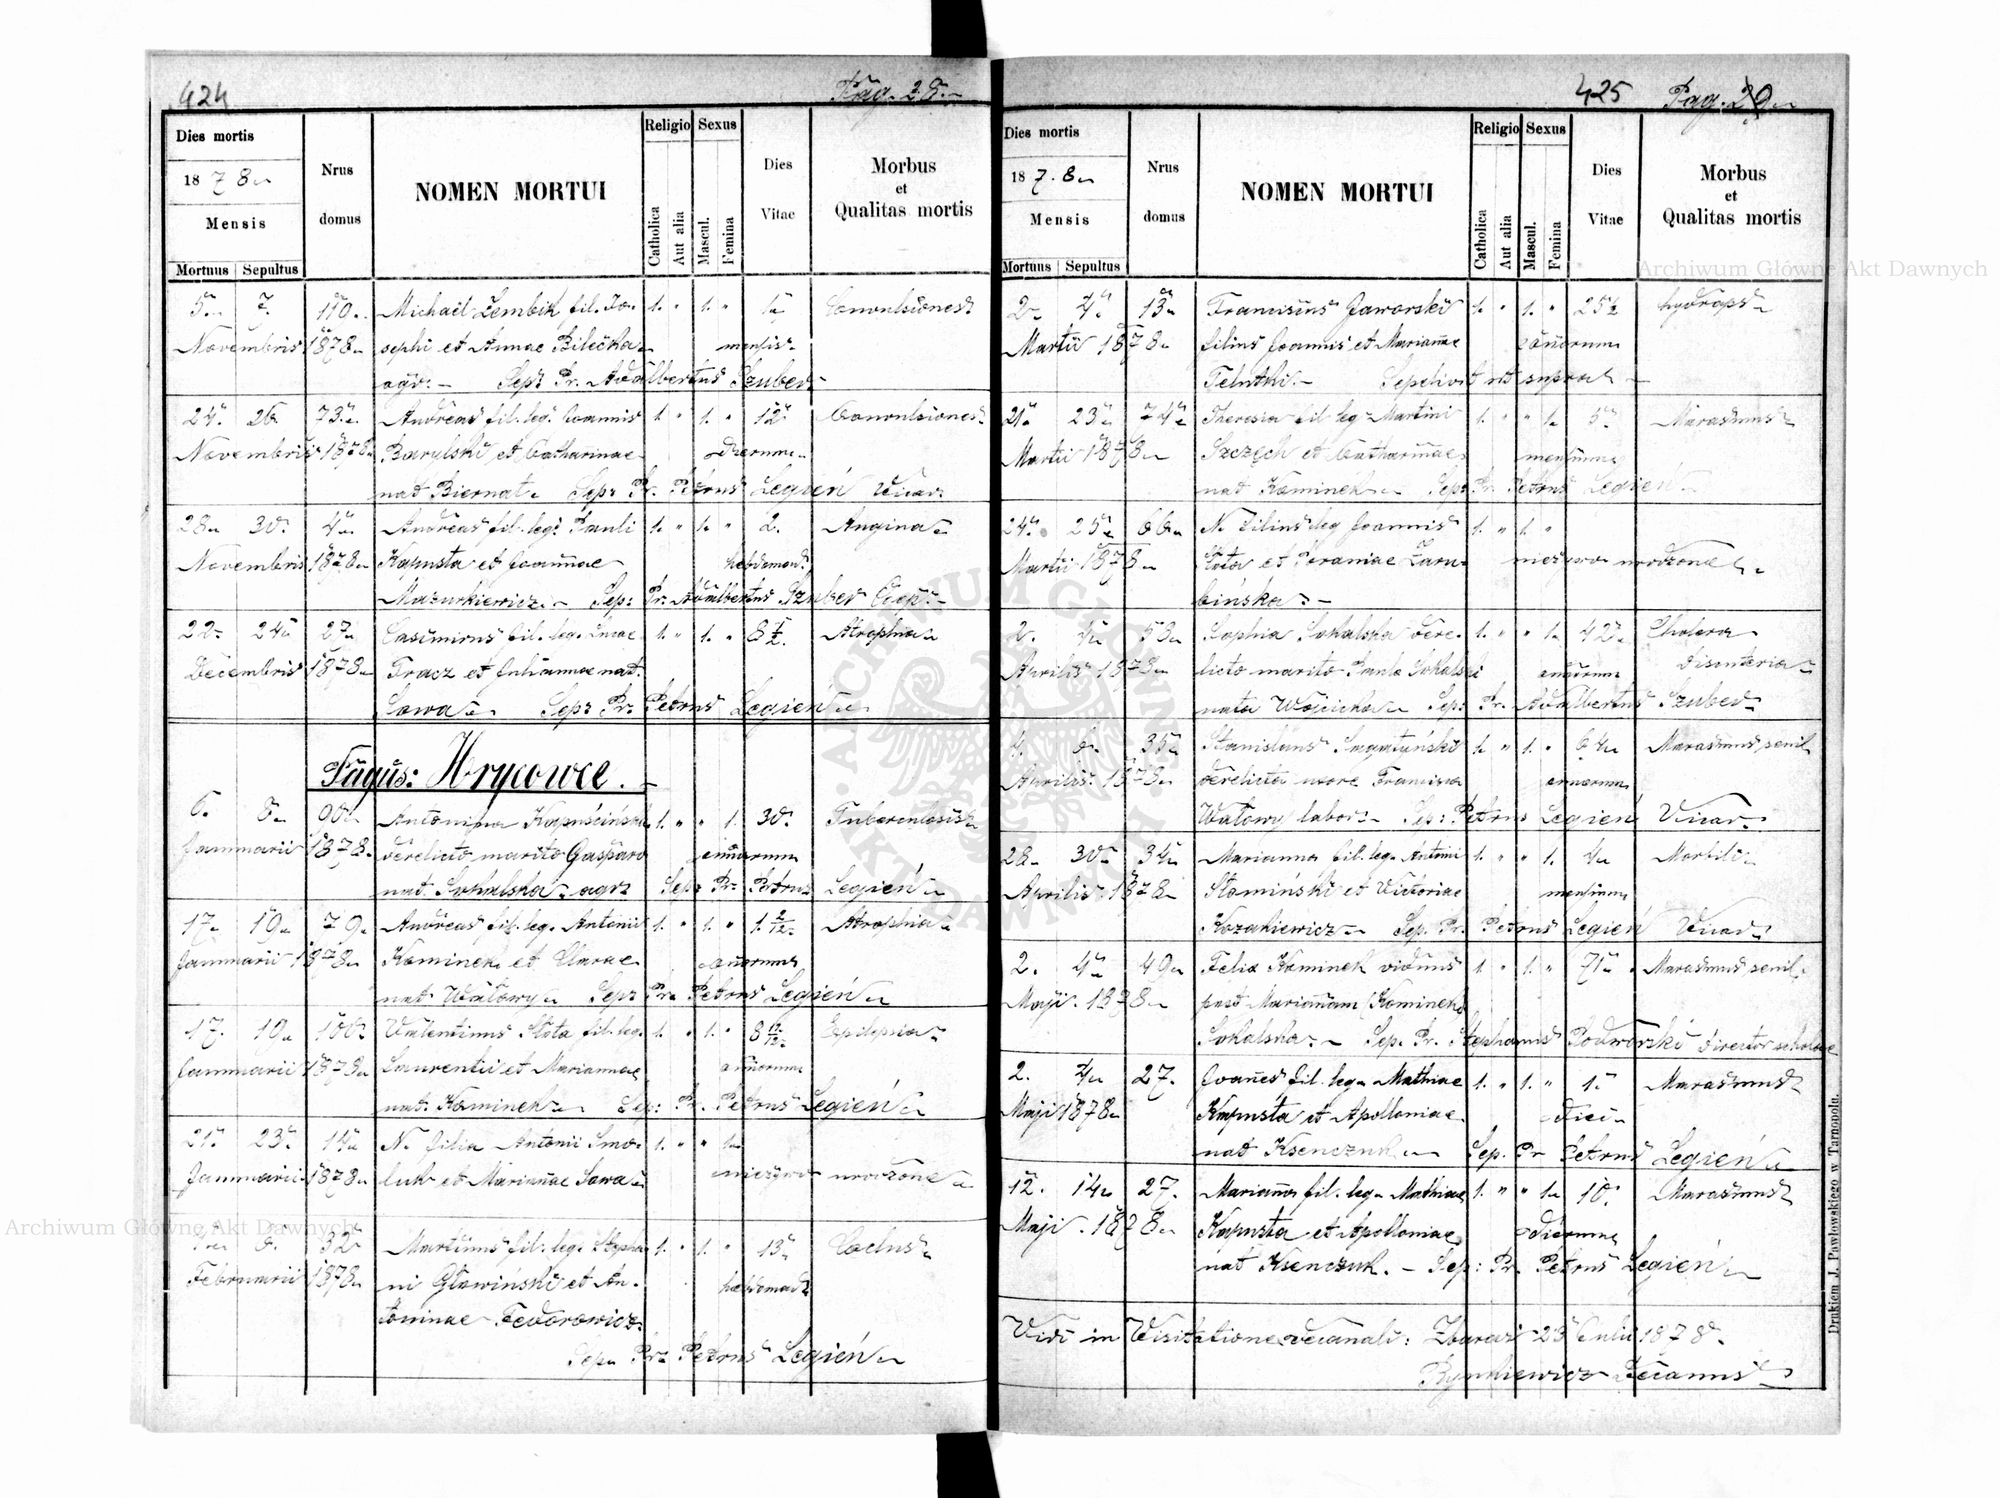 424 Pag. 28.
Dies mortis
1878
Mensis
Mortuus Sepultus
Nrus domus
NOMEN MORTUI
Religio
Catholica
Aut alia
Sexus
Mascul.
Femina
Dies Vitae
Morbus
et
Qualitas mortis
5. 7. 110. Michaël Lembik fil. Jo- 1. " 1. " 1 Convulsiones
Novembris 1878 sephi et Annae Bilečka mensis
agr. Sep: Pr. Adalbertus Szuber
24. 26. 73. Andreas fil. leg. Joannis 1. " 1. " 12 Convulsiones
Novembris 1878 Barylski et Catharinae dierum
nat. Biernat. Sep: Pr. Petrus Legień Vicar.
28. 30. 4. Andreas fil. leg. Pauli 1. " 1. " 2. Angina
Novembris 1878 Kapusta et Joannae hebdomad.
Mazurkiewicz. Sep: Pr. Adalbertus Szuber
22. 24. 27. Casimirus fil. leg. 1. " 1. " 6 1/2. Atrophia
Decembris 1878 Tracz et Julianna nat.
Sowa. Sep: Pr. Petrus Legień
Pagus: Hrycowce.
6. 8. 90. Antonina Kapuścińska 1. " " 1. 30. Tuberculosis
Januarii 1878. derelicto marito Gasparo annorum
nat. Sokalska agr. Sep: Pr. Petrus Legień
17. 19. 79. Andreas fil. leg. Antonii 1. " 1. " 1 2/12. Atrophia
Januarii 1878 Kominek et Clarae annorum
nat. Watowy. Sep: Pr. Petrus Legień
17. 19. 100. Valentinus Słota fil. leg. 1. " 1. " Epilepsia
Januarii 1878 Laurentii et Mariannae annorum
nat. Kominek. Sep: Pr. Petrus Legień
21. 23. 14. N. filia Antonii Smo- 1. " " 1.
Januarii 1878 luk et Mariannae Sowa nieżywo urodzone
8. 32. Martinus fil. leg. Stepha- 1. " 1. " 13.
Februarii 1878 ni Gławiński et An- hebdomad.
toninae Fedorowicz.
Sep. Pr. Petrus Legień
425 Pag. 29.
Dies mortis
1878
Mensis
Mortuus Sepultus
Nrus domus
NOMEN MORTUI
Religio
Catholica
Aut alia
Sexus
Mascul.
Femina
Dies Vitae
Morbus
et
Qualitas mortis
2. 4. 13. Franciscus Jaworski 1. " 1. " hydrops
Martii 1878 filius Joannis et Mariannae annorum
Sepelivit ut supra
21. 23. 74. Theresia fil. leg. Martini 1. " " 1. 5. Marasmus
Martii 1878 Szczęch et Catharinae mensium
nat. Kominek. Sep: Pr. Petrus Legień
24. 25. 66. N. filius leg. Joannis 1. " 1. "
Martii 1878 Słota et nieżywo urodzone
bińska.
2. 4. 58. Sophia Sokalska dere- 1. " " 1. 42. Cholera
Aprilis 1878 licto marito Paulo Sokalski annorum Disenteria
nata Wojcicka. Sep. Pr. Adalbertus Szuber
4. 6. 35. Stanislaus 1. " 1. " 64. Marasmus senil.
Aprilis 1878 derelicta uxore Francisca annorum
Watowy labor. Sep: Petrus Legień Vicar.
28. 30. 34. Marianna fil. leg. Antoni 1. " " 1. 4. Morbili
Aprilis 1878 Słomiński et Victoriae mensium
Kozakiewicz. Sep. Pr. Petrus Legień Vicar.
2. 4. 49. Felix Kominek viduus 1. " 1. " 71. Marasmus senil.
Maji 1878 post Mariannam Kominek
Sokalska. Sep. Pr. Stephanus Podworski director scholae
2. 4. 27. Joannes fil. leg. Mathiae 1. " 1. " 1. Marasmus
Maji 1878 Kapusta et Apolloniae diei
nat. Ksenczuk. Sep. Pr Petrus Legień
12. 14. 27. Marianna fil. leg. Mathiae 1. " " 1. 10. Marasmus
Maji 1878 Kapusta et Apolloniae dierum
nat. Ksenczuk. Sep: Pr. Petrus Legień
Vidi in Visitatione decanali: Zbaraż 23 Julii 1878.
Decanus
Drukiem J. Pawłowskiego w Tarnopolu.
Archiwum Główne Akt Dawnych
Archiwum Główne Akt Dawnych
ARCHIWUM GŁÓWNE AKT DAWNYCH